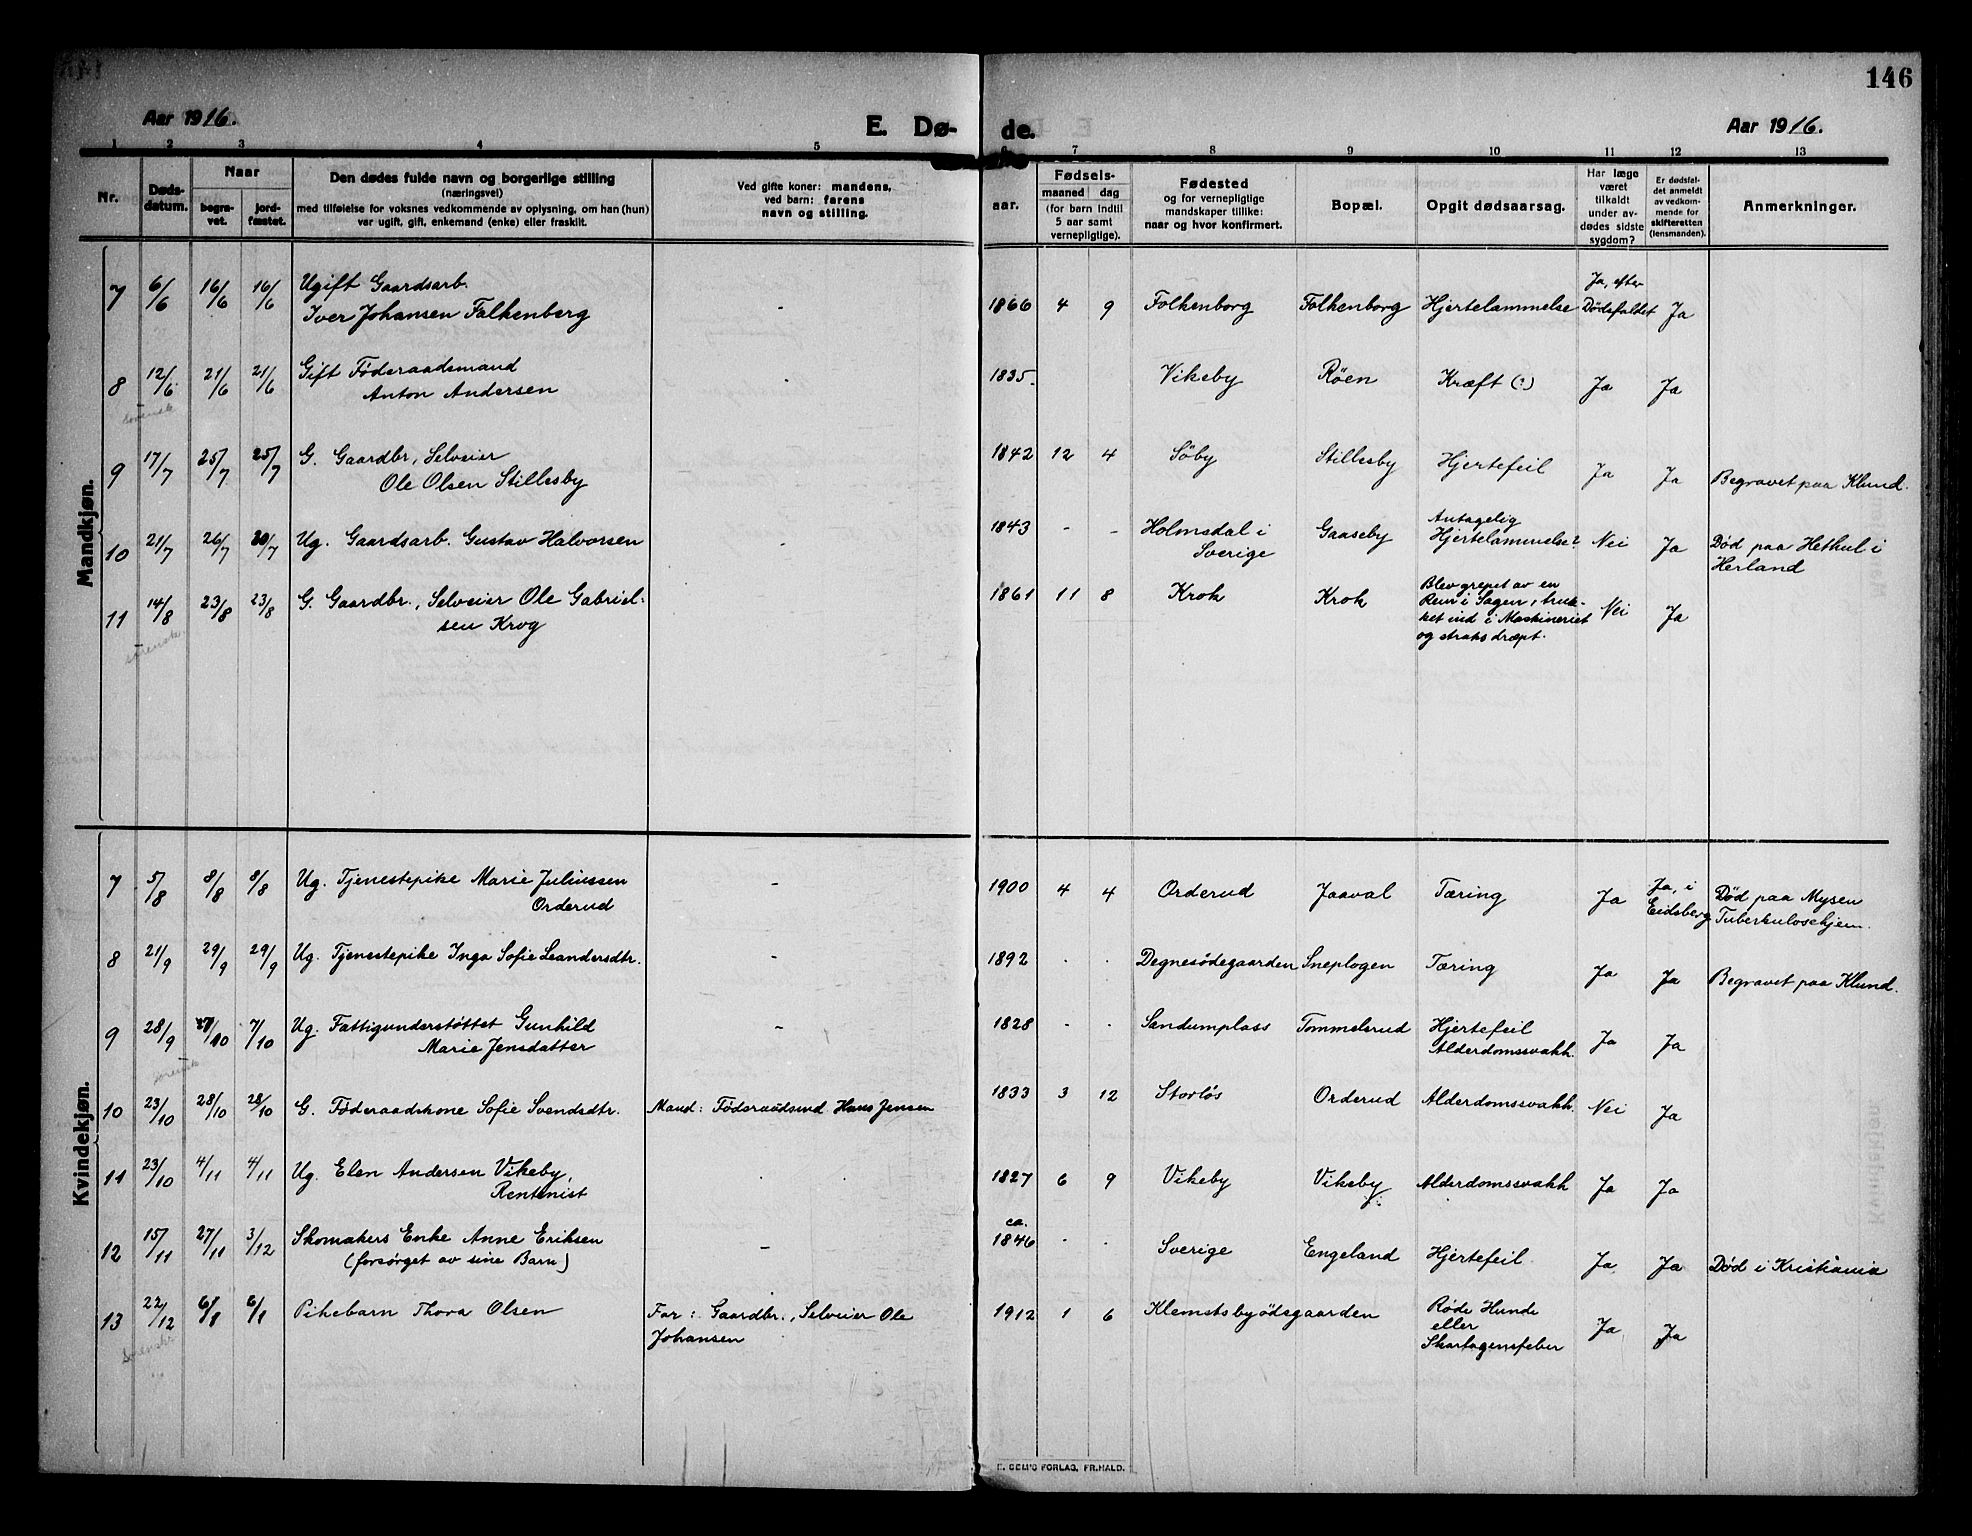 146
Aar 1916.
E. Dø-
de.
Aar 1916.
1 2 3 4 5 6 7 8 9 10 11 12 13
Nr.
Døds-
datum.
Naar
begra-
vet.
jord-
fæstet.
Den dødes fulde navn og borgerlige stilling
(næringsvei)
med tilføielse for voksnes vedkommende av oplysning, om han (hun)
var ugift, gift, enkemand (enke) eller fraskilt.
Ved gifte koner: mandens,
ved barn: farens
navn og stilling.
Fødsels-
aar.
maaned
dag
(for barn indtil
5 aar samt
vernepligtige).
Fødested
og for vernepligtige
mandskaper tillike:
naar og hvor konfirmert.
Bopæl.
Opgit dødsaarsag.
Har læge
været
tilkaldt
under av-
dødes sidste
sygdom?
Er dødsfal-
det anmeldt
av vedkom-
mende for
skifteretten
(lensmanden).
Anmerkninger.
Mandkjøn.
7 6/6 16/6 16/6 Ugift Gaardsarb.
Iver Johansen Falkenberg - 1866 4 9 Folkenborg Folkenborg Hjertelammelse Ja, efter
Dødsfaldet Ja
8 12/6 21/6 21/6 Gift Føderaadsmand
Anton Andersen - 1835. Vikeby Røen Kræft (?) Ja Ja
9 17/7 25/7 25/7 G. Gaardbr, Selveier
Ole Olsen Stillesby 1842 12 4 Søby Stillesby Hjertefeil Ja Ja Begravet paa Klund.
10 21/7 26/7 20/7 Ug. Gaardsarb. Gustav Halvorsen - 1843 - - Holmedal i
Sverige Gaaseby Antagelig
Hjertelammelse? Nei Ja Død paa Hethul i
Herland
11 14/8 23/8 23/8 G. Gaardbr., Selveier Ole Gabriel-
sen Krog 1861 11 8 Krok Krok Blev grepet av en
Rem i Sagen, truk-
ket ind i Maskineriet
og straks dræpt. Nei Ja
Kvindekjøn.
7 5/8 8/8 8/8 Ug. Tjenestepike Marie Juliussen
Orderud - 1900 4 4 Orderud Jaaval Tæring Ja Ja, i
Eidsberg Død paa Mysen
Tuberkuloschjem.
8 21/9 29/9 29/9 Ug. Tjenestepike Inga Sofie Leandersdtr. - 1892 . . Degnesødegaarden Sneplogen Tæring Ja Ja Begravet paa Klund.
9 28/9 7/10 7/10 Ug. Fattigunderstøttet Gunhild
Marie Jensdatter - 1828 - . Sandumplass Tommelsrud Hjertefeil
Alderdomssvakh. Ja Ja
10 23/10 28/10 28/10 G. Føderaadskone Sofie Svendsdtr. Mand: Føderaadsmd. Hans Jensen 1833 3 12 Storløs Orderud Alderdomssvakh. Nei Ja
11 23/10 4/11 4/11 Ug. Elen Andersen Vikeby,
Rentenist . 1827 6 9 Vikeby Vikeby Alderdomssvakh Ja Ja
12 15/11 27/11 3/12 Skomakers Enke Anne Eriksen
(forsørget av sine Barn) - ca.
1846 . . Sverige Engeland Hjertefeil. Ja Ja Død i Kristiania
13 22/12 6/1 6/1 Pikebarn Thora Olsen Far: Gaardbr., Selveier Ole
Johansen 1912 1 6 Klemetsbyødegaarden Røde Hunde
eller
Skarlagensfeber Ja Ja
E. SEM'S FORLAG, FR.HALD.